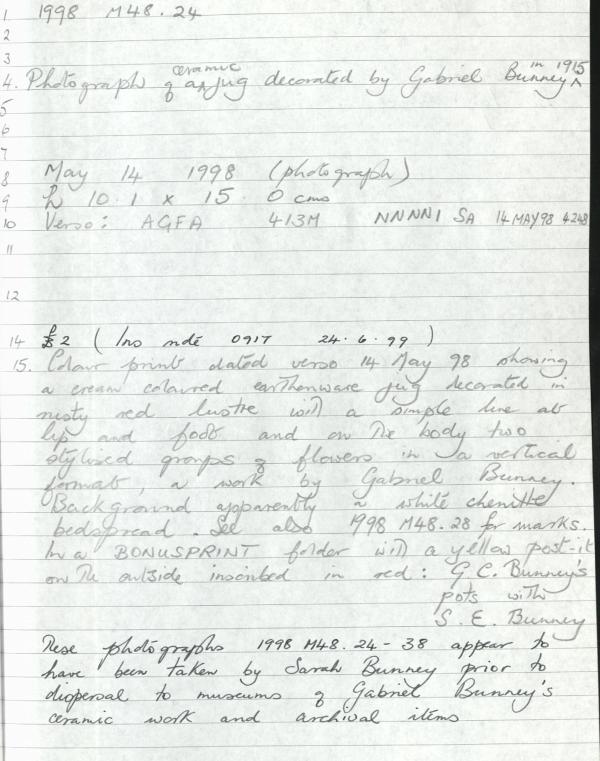 1 1998 M48.24
2
3
4. Photograph of a ceramic jug decorated by Gabriel Bunney in 1915
5
6
7
8 May 14 1998 (photograph)
9 h 10.1 x 15.0 cms
10 Verso: AGFA 413M NNNNI SA 14MAY98 4248
11
12
14 £2 (Ins nde 0917 24.6.99)
15. Colour print dated verso 14 May 98 showing
a cream coloured earthenware jug decorated in
rusty red lustre with a simple line at
lip and foot and on the body two
stylised groups of flowers in a vertical
format, a work by Gabriel Bunney.
Background apparently a white chenille
bedspread. See also 1998 M48.28 for marks.
In a BONUSPRINT folder with a yellow post-it
on the outside inscribed in red: G C. Bunney's
pots with
S. E. Bunney
These photographs 1998 M48.24-38 appear to
have been taken by Sarah Bunney prior to
dispersal to museums of Gabriel Bunney's
ceramic work and archival items